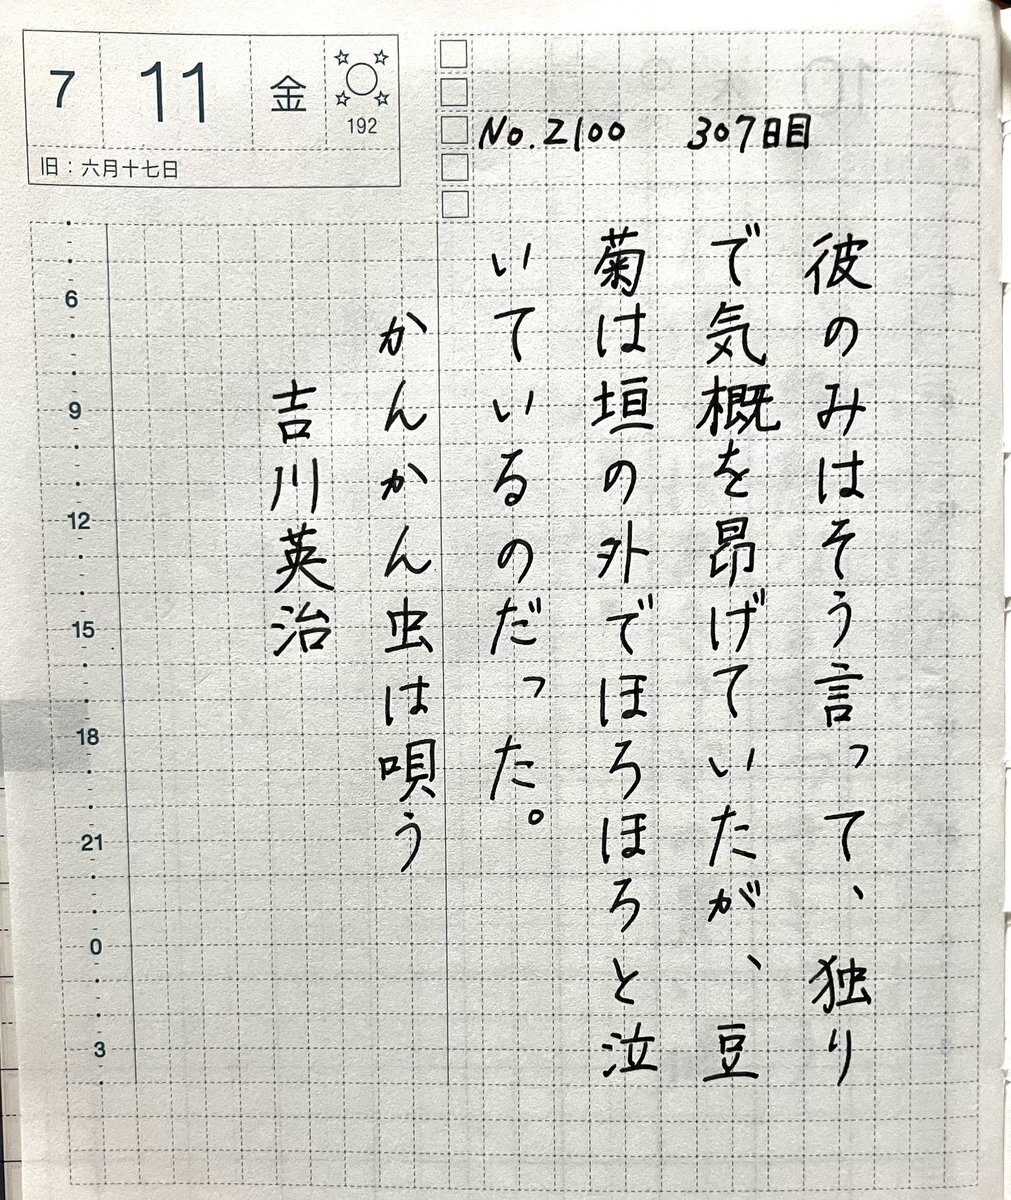 7 11 金
192
旧：六月十七日
No.2100 307日目
彼のみはそう言って、独り
で気概を昂げていたが、豆
菊は垣の外でほろほろと泣
いているのだった。
かんかん虫は唄う
吉川英治
6
9
12
15
18
21
0
3